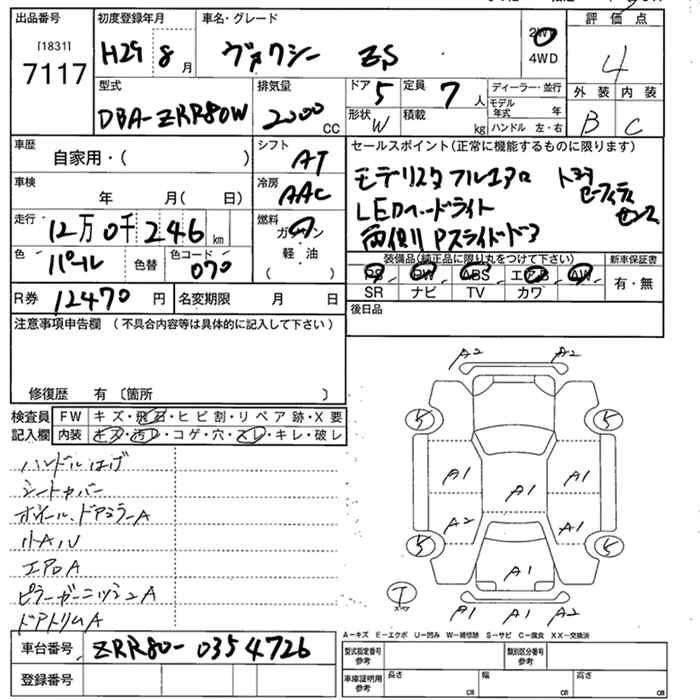 出品番号 初度登録年月 車名・グレード 評価点
[1831] 7117 H29 8月 ヴォクシー ZS 2WD 4WD 4
型式 排気量 ドア 5 定員 7人 ディーラー・並行 外装 内装
DBA-ZRR80W 2000 CC 形状 W 積載 kg モデル年式 年 B C
ハンドル 左・右
車歴 自家用・( ) シフト AT セールスポイント(正常に機能するものに限ります)
車検 年 月( 日) 冷房 AAC モデリスタフルエアロ トヨタ
セーフティ
LEDヘッドライト センス
走行 12万0千246km 燃料 ガソリン・軽油( ) 両側Pスライドドア
色 パール 色替 色コード 070 装備品(純正品に限り丸をつけて下さい) 新車保証書
PS PW ABS エアB AW 有・無
R券 12470円 名変期限 月 日 SR ナビ TV カワ
注意事項申告欄 (不具合内容等は具体的に記入して下さい) 後日品
修復歴 有 〔箇所 〕
検査員記入欄 FW キズ・飛石・ヒビ割・リペア跡・X要
内装 キズ・汚レ・コゲ・穴・スレ・キレ・破レ
ハンドルはげ
シートカバー
ホイール、ドアミラーA
小A、U
エアロA
ピラーガーニッシュA
ドアトリムA
A2 A2
5 5
A1 A1 A1
A2 A1
5 5
A1
T スペア
A1 A1 A2
A-キズ E-エクボ U-凹み W-補修跡 S-サビ C-腐食 XX-交換済
車台番号 ZRR80-0354726 型式指定番号 参考 類別区分番号 参考
登録番号 車庫証明用 参考 長さ cm 幅 cm 高さ cm